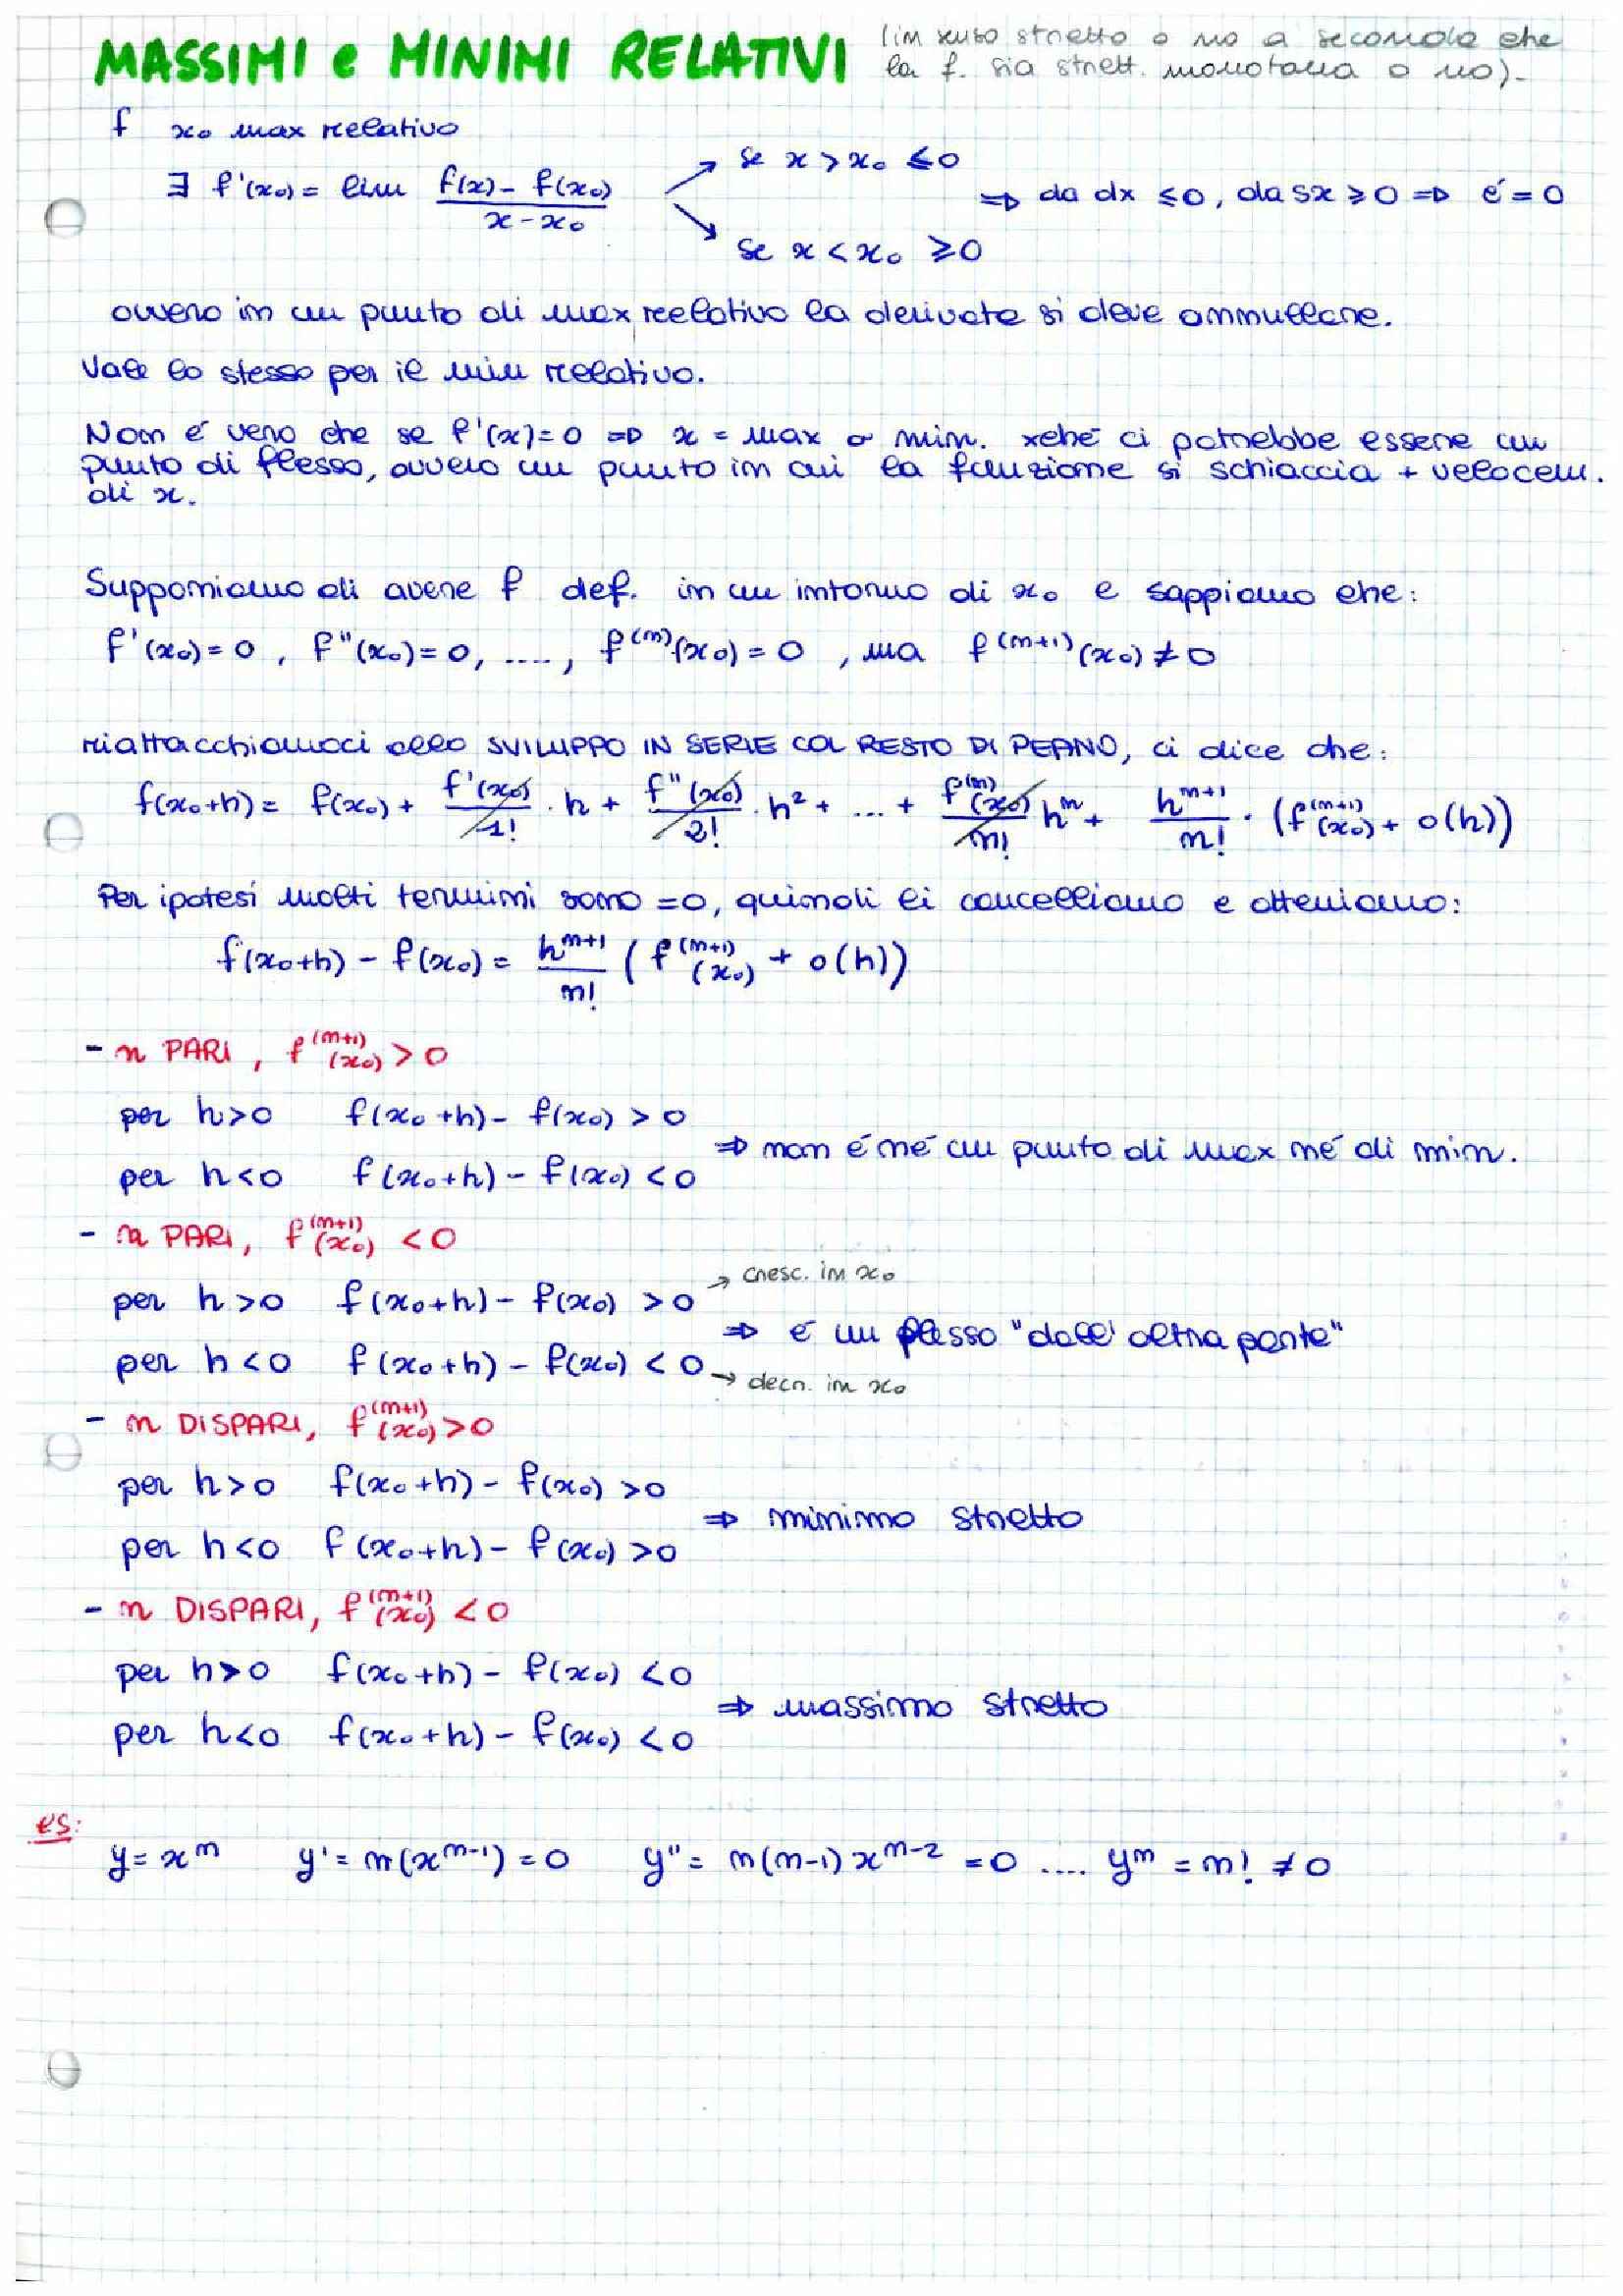 MASSIMI e MINIMI RELATIVI (in senso stretto o no a seconda che
la f. sia strett. monotona o no).
f x₀ max relativo
∃ f'(x₀) = lim (f(x) - f(x₀))/(x - x₀) ↗ se x > x₀ ≤ 0 ↘ se x < x₀ ≥ 0 ⇒ da dx ≤ 0, da sx ≥ 0 ⇒ é = 0
ovvero in un punto di max relativo la derivata si deve annullare.
Vale lo stesso per il min relativo.
Non é vero che se f'(x) = 0 ⇒ x = max o min. xché ci potrebbe essere un
punto di flesso, ovvero un punto in cui la funzione si schiaccia + velocem.
di x.
Supponiamo di avere f def. in un intorno di x₀ e sappiamo che:
f'(x₀) = 0, f''(x₀) = 0, ...., f⁽ⁿ⁾(x₀) = 0, ma f⁽ⁿ⁺¹⁾(x₀) ≠ 0
riattacchiamoci allo SVILUPPO IN SERIE COL RESTO DI PEANO, ci dice che:
f(x₀+h) = f(x₀) + f'(x₀)/1! · h + f''(x₀)/2! · h² + ... + f⁽ⁿ⁾(x₀)/n! hⁿ + hⁿ⁺¹/n! · (f⁽ⁿ⁺¹⁾(x₀) + o(h))
Per ipotesi molti termini sono = 0, quindi li cancelliamo e otteniamo:
f(x₀+h) - f(x₀) = hⁿ⁺¹/n! (f⁽ⁿ⁺¹⁾(x₀) + o(h))
- n PARI, f⁽ⁿ⁺¹⁾(x₀) > 0
per h>0 f(x₀+h) - f(x₀) > 0
⇒ non é né un punto di max né di min.
per h<0 f(x₀+h) - f(x₀) < 0
- n PARI, f⁽ⁿ⁺¹⁾(x₀) < 0
→ cresc. in x₀
per h>0 f(x₀+h) - f(x₀) > 0
⇒ é un flesso "dall'altra parte"
per h<0 f(x₀+h) - f(x₀) < 0
→ decr. in x₀
- n DISPARI, f⁽ⁿ⁺¹⁾(x₀) > 0
per h>0 f(x₀+h) - f(x₀) > 0
⇒ minimo stretto
per h<0 f(x₀+h) - f(x₀) > 0
- n DISPARI, f⁽ⁿ⁺¹⁾(x₀) < 0
per h>0 f(x₀+h) - f(x₀) < 0
⇒ massimo stretto
per h<0 f(x₀+h) - f(x₀) < 0
es:
y = xⁿ y' = n(xⁿ⁻¹) = 0 y'' = n(n-1)xⁿ⁻² = 0 .... yⁿ = n! ≠ 0